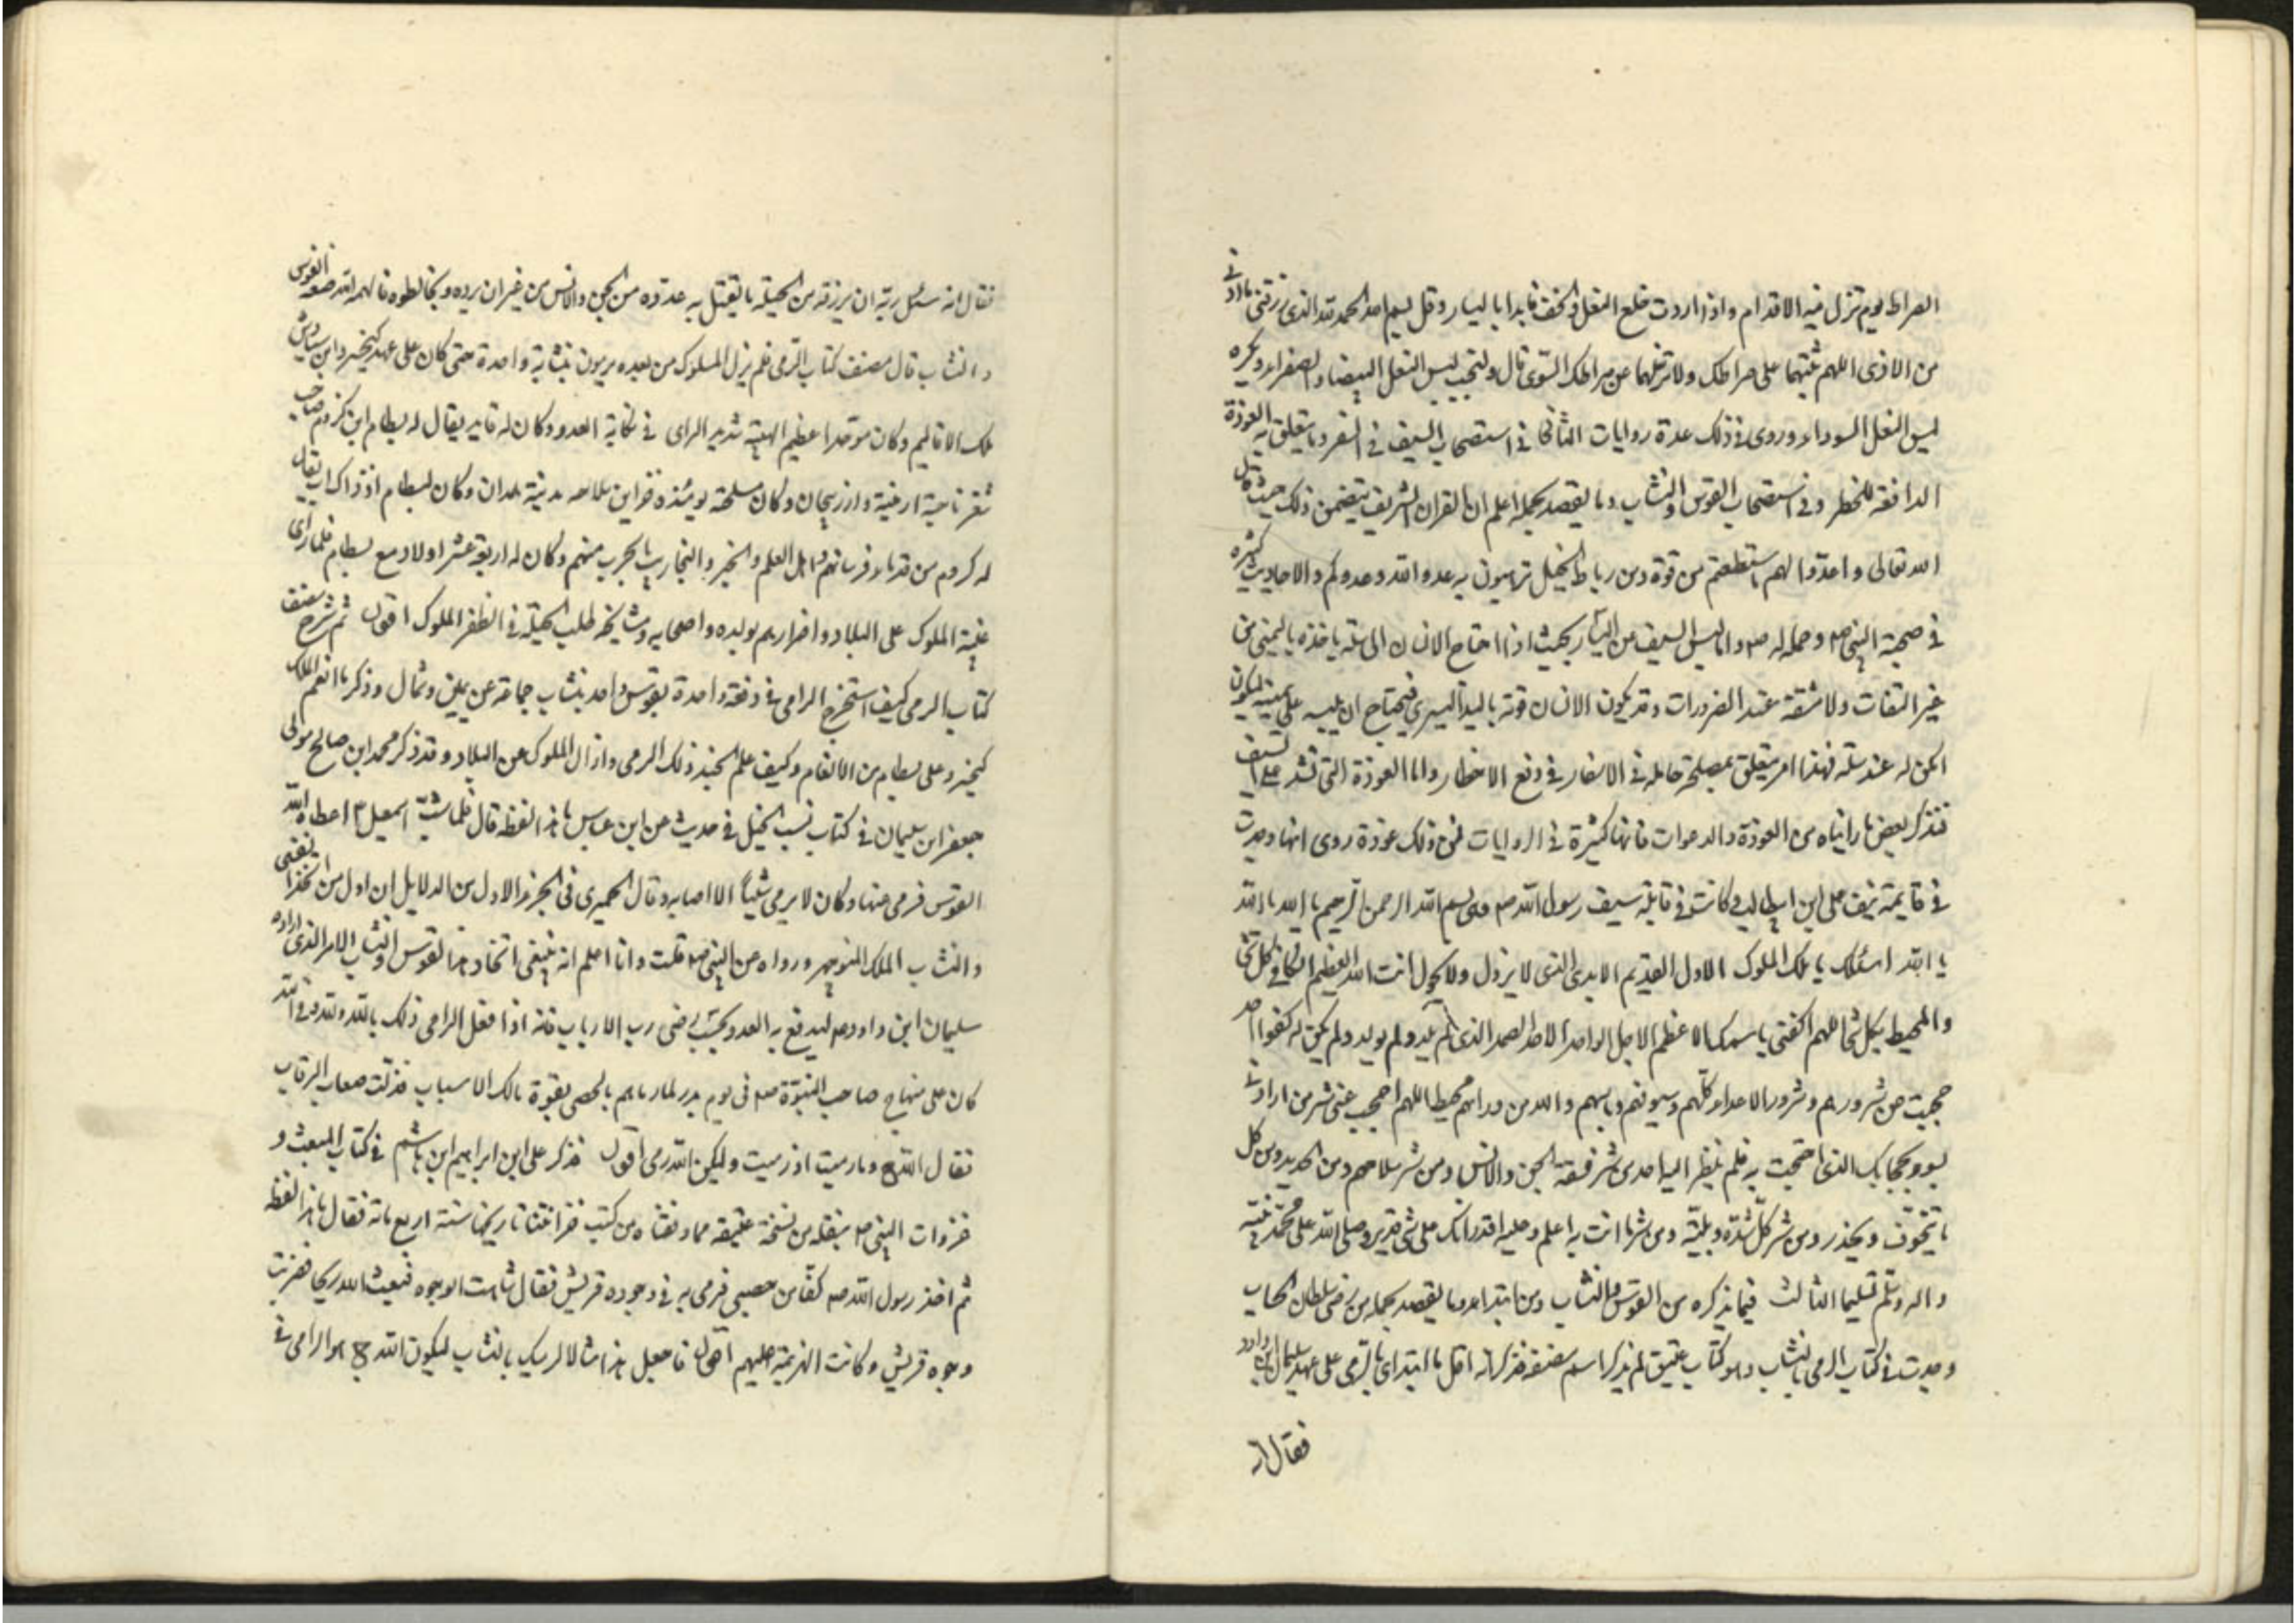 الصراط يوم تزل فيه الاقدام واذا اردت خلع النعل والخف فابدا باليسار وقل بسم الله الحمد لله الذى رزقنى ما اوقى به قدمى
من الاذى اللهم ثبتهما على صراطك ولا تزلهما عن صراطك السوى قال ويستحب لبس النعل البيضاء والصفراء ويكره
لبس النعل السوداء وروى فى ذلك عدة روايات الثانى فى استصحاب السيف فى السفر وما يتعلق به العوذة
الدافعة للخطر وفى استصحاب القوس والنشاب وما يقصد بحمله اعلم ان القران الشريف يتضمن ذلك حيث قال
الله تعالى واعدوا لهم ما استطعتم من قوة ومن رباط الخيل ترهبون به عدو الله وعدوكم والاحاديث كثيره
فى صحبة النبى ص وحمله له ص واما لبس السيف عن اليسار بحيث اذا احتاج الانسان الى سله ياخذه باليمنى من
غير التفات ولا مشقة عند الضرورات وقد يكون الانسان قوته باليد اليسرى فيحتاج ان يلبسه على يمينه ليكون
امكن له عند سله فهذا امر يتعلق بمصلحة حامله فى الاسفار فى دفع الاخطار واما العوذة التى تشد على السيف
فنذكر بعض ما رايناه من العوذة والدعوات فانها كثيرة فى الروايات فمن ذلك عوذة روى انها وجدت
فى قايمة سيف على ابن ابى طالب وكانت فى قايمة سيف رسول الله ص وهى بسم الله الرحمن الرحيم يا الله يا الله
يا الله اسئلك يا ملك الملوك الاول القديم الابدى الذى لا يزول ولا يحول انت الله العظيم الكافى كل شئ
والمحيط بكل شئ اللهم اكفنى باسمك الاعظم الاجل الواحد الاحد الصمد الذى لم يلد ولم يولد ولم يكن له كفوا احد
احجب عنى شرورهم وشرور الاعداء كلهم وسيوفهم وباسهم والله من ورائهم محيط اللهم احجب عنى شر من ارادنى
بسوء بحجابك الذى احتجبت به فلم ينظر اليه احد من شر فسقة الجن والانس ومن شر سلاحهم ومن الحديد ومن كل
ما يتخوف ويحذر ومن شر كل شدة وبلية ومن شر ما انت به اعلم وعليه اقدر انك على كل شئ قدير وصلى الله على محمد نبيه
واله وسلم تسليما الثالث فيما يذكره من القوس والنشاب ومن ابتداءه وما يقصد بحمله من رضى سلطان الحساب
وجدت فى كتاب الرمى بالنشاب وهو كتاب عتيق لم يذكر اسم مصنفه فذكر انه اقل ما ابتداى بالرمى على عهد سليمان بن داود
فقال انه
فقال انه سئل ربه ان يرزقه من الحيلة ما يقتل به عدوه من الجن والانس من غير ان يرده ويخالطوه فالهمه الله صنعة القوس
والنشاب قال مصنف كتاب الرمى فلم يزل الملوك من بعده يرمون بنشابة واحدة حتى كان على عهد كيخسرو ابن سياوش
ملك الاقاليم وكان موقدا عظيم الهيبة شديد الراى فى نكاية العدو وكان له قايد يقال له بسطام ابن كردم صاحب
ثغر ناحية ارمنية واذربيجان وكان مسلحة يومئذ مدينة همدان وكان لبسطام اذ ذاك اب يقال
له كردم من قدماء فرسانهم واهل العلم والخير والتجارب بالحرب منهم وكان له اربعة عشر اولاد مع بسطام فلما راى
غلبة الملوك على البلاد واضرارهم بولده واصحابه ومشايخه طلب الحيلة فى الظفر الملوك اقول ثم شرح مصنف
كتاب الرمى كيف استخرج الرامى فى دفعة واحدة بقوس واحد بنشاب جماعة عن يمين وشمال وذكر ما انعم الملك
كيخسرو على بسطام من الانعام وكيف علم الجند ذلك الرمى وازال الملوك عن البلاد وقد ذكر محمد ابن صالح مولى
جعفر ابن سليمان فى كتاب نسب الخيل فى حديث عن ابن عباس ما هذا لفظه قال فلما شب اسمعيل ع اعطاه الله
القوس فرمى عنها وكان لا يرمى شيئا الا اصابه وقال الحميرى فى الجزء الاول من الدلايل ان اول من اتخذ القسى
والنشاب الملك المنوچهر ورواه عن النبى ص قلت وانا اعلم انه ينبغى اتخاذ هذا القوس والنشاب الامر الذى اراده
سليمان ابن داود ع ليدفع به العدو ويكتسب رضى رب الارباب فانه اذا فعل الرامى ذلك بالله ولله وفى الله
كان على منهاج صاحب النبوة ص فى يوم بدر لما رماهم بالحصى بقوة مالك الاسباب فذلت صعاب الرقاب
فقال الله تع وما رميت اذ رميت ولكن الله رمى اقول فذكر على ابن ابراهيم ابن هاشم فى كتاب المبعث و
غزوات النبى ص ننقله من نسخة عتيقه مما وقفناه من كتب خزانتنا تاريخها سنة اربع مائة فقال ما هذا لفظه
ثم اخذ رسول الله ص كفا من حصى فرمى به فى وجوه قريش فقال شاهت الوجوه فبعث الله ريحا فضربت
وجوه قريش وكانت الهزيمة عليهم انتهى فاجعل هذا مثالا لرميك بالنشاب ليكون الله تع هو الرامى فى